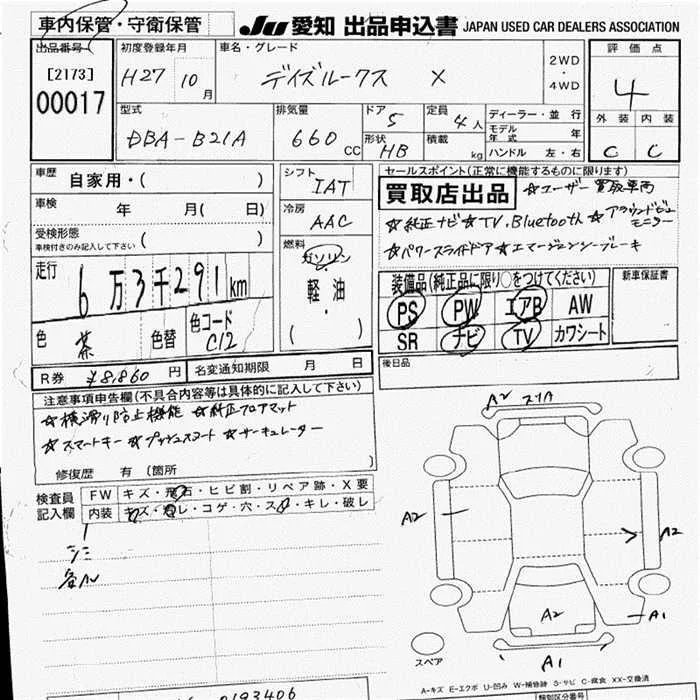 車内保管・守衛保管
JU 愛知 出品申込書 JAPAN USED CAR DEALERS ASSOCIATION
出品番号
[2173]
00017
初度登録年月
H27 10月
車名・グレード
デイズルークス X
2WD
・
4WD
評価点
4
外装 内装
C C
型式
DBA-B21A
排気量
660 CC
ドア 5
形状 HB
定員 4人
積載 kg
ディーラー・並行
モデル年式 年
ハンドル 左・右
車歴 自家用・( )
車検 年 月( 日)
受検形態 ( )
車検付きのみ記入して下さい
シフト
IAT
冷房
AAC
燃料
ガソリン
・
軽油
・
( )
セールスポイント(正常に機能するものに限ります)
買取店出品 ☆ユーザー買取車両
☆純正ナビ☆TV.Bluetooth☆アラウンドビューモニター
☆パワースライドドア☆エマージェンシーブレーキ
走行
6万3千291km
色 茶 色替
色コード
C12
装備品(純正品に限り○をつけてください)
PS PW エアB AW
SR ナビ TV カワシート
新車保証書
R券 ¥8,860円
名変通知期限 月 日
後日品
注意事項申告欄(不具合内容等は具体的に記入して下さい)
☆横滑り防止機能 ☆純正フロアマット
☆スマートキー ☆プッシュスタート ☆サーキュレーター
修復歴 有 (箇所 )
検査員記入欄
FW キズ・飛石・ヒビ割・リペア跡・X要
内装 キズ・汚レ・コゲ・穴・スレ・キレ・破レ
シミ
A2 スリA
A2
A2
A2
A1
A1
スペア
A-キズ E-エクボ U-凹み W-補修跡 S-サビ C-腐食 XX-交換済
種別区分番号
0193406